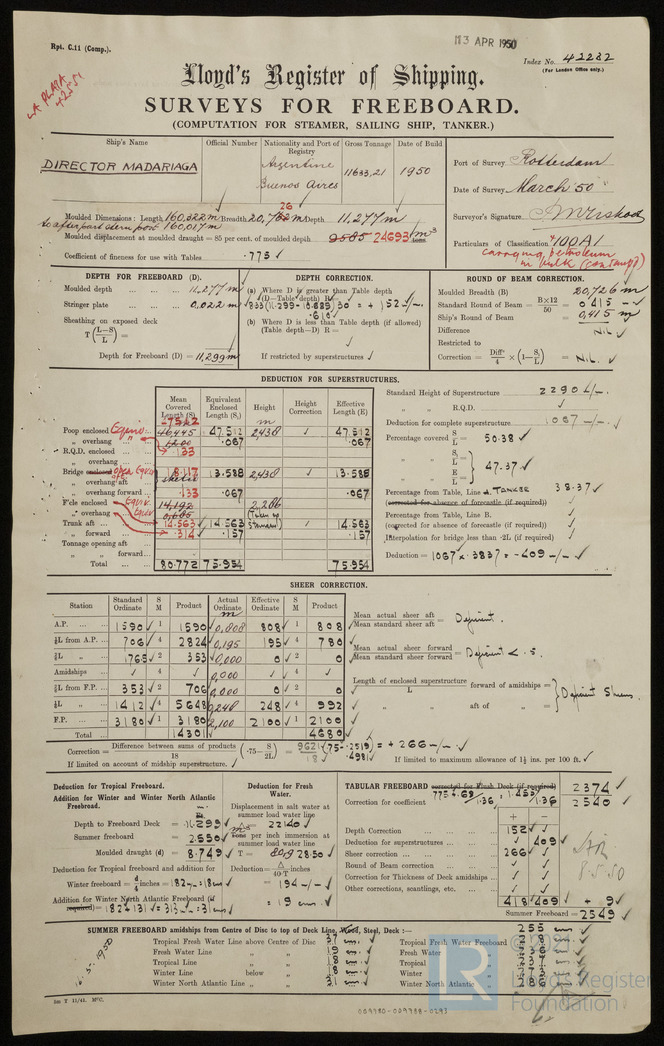 Rpt. C.11 (Comp.).
13 APR 1950
Index No. 42232
(For London Office only.)
LA PLATA
42551
Lloyd's Register of Shipping.
SURVEYS FOR FREEBOARD.
(COMPUTATION FOR STEAMER, SAILING SHIP, TANKER.)
Ship's Name
Official Number
Nationality and Port of Registry
Gross Tonnage
Date of Build
DIRECTOR MADARIAGA
Argentine
Buenos Aires
11633,21
1950
Port of Survey Rotterdam
Date of Survey March 50
Surveyor's Signature
Particulars of Classification +100A1
carrying petroleum
in bulk
Moulded Dimensions: Length 160,322 m Breadth 20,726 m Depth 11.277 m
to after part stern post 160,017 m
Moulded displacement at moulded draught = 85 per cent. of moulded depth 9585 24693 m3 tons
Coefficient of fineness for use with Tables .775
DEPTH FOR FREEBOARD (D).
Moulded depth ... 11,277 m
Stringer plate ... 0,022 m
Sheathing on exposed deck
T (L–S/L) =
Depth for Freeboard (D) = 11,299 m
DEPTH CORRECTION.
(a) Where D is greater than Table depth
(D—Table depth) R =
= + 152
(b) Where D is less than Table depth (if allowed)
(Table depth—D) R =
If restricted by superstructures
ROUND OF BEAM CORRECTION.
Moulded Breadth (B) 20,726 m
Standard Round of Beam = B×12/50 = 0 415
Ship's Round of Beam = 0,415 m
Difference NIL
Restricted to
Correction = Diffce/4 × (1–S1/L) = NIL.
DEDUCTION FOR SUPERSTRUCTURES.
Mean Covered Length (S)
Equivalent Enclosed Length (S1)
Height
Height Correction
Effective Length (E)
Poop enclosed Equiv. 46,445 47.512 2,438 47.512
„ overhang „ 1,200 .133 .067 .067
R.Q.D. enclosed
„ overhang
Bridge enclosed open Equiv 13.588 2,438 13.588
„ overhang aft
„ overhang forward .133 .067 .067
F'cle enclosed Equiv. 14,192 2,286
„ overhang Equiv
Trunk aft 14.563 14.563 14.563
„ forward .314 .157 .157
Tonnage opening aft
„ „ forward
Total 80.772 75.954 75.954
Standard Height of Superstructure 2290
„ „ R.Q.D.
Deduction for complete superstructure 1067
Percentage covered S/L = 50.38
„ S1/L =
„ E/L = 47.37
Percentage from Table, Line A. TANKER 38.37
(corrected for absence of forecastle (if required))
Percentage from Table, Line B.
(corrected for absence of forecastle (if required))
Interpolation for bridge less than ·2L (if required)
Deduction = 1067 × .3837 = -409
SHEER CORRECTION.
Station
Standard Ordinate
S M
Product
Actual Ordinate m
Effective Ordinate
S M
Product
A.P. 1590 1 1590 0,808 808 1 808
⅙L from A.P. 706 4 2824 0,195 195 4 780
⅓L „ 2 353 0,000 0 2 0
Amidships 4 0,000 4
⅓L from F.P. 353 2 706 0,000 0 2 0
⅙L „ 1412 4 5648 0,248 248 4 992
F.P. 3180 1 3180 2,100 2100 1 2100
Total 14301 4680
Mean actual sheer aft / Mean standard sheer aft = Deficient.
Mean actual sheer forward / Mean standard sheer forward = Deficient < .5.
Length of enclosed superstructure / L forward of amidships =
„ „ aft of „ =
Deficient Sheer.
Correction = Difference between sums of products / 18 (·75–S/2L) = 9621/18 (.75-.2519) = + 266
.4981
If limited on account of midship superstructure.
If limited to maximum allowance of 1½ ins. per 100 ft.
Deduction for Tropical Freeboard.
Addition for Winter and Winter North Atlantic Freeboard.
Depth to Freeboard Deck = 11.299
Summer freeboard = 2.550
Moulded draught (d) = 8.749
Deduction for Tropical freeboard and addition for
Winter freeboard = d/4 inches = 182 = 18 cm
Addition for Winter North Atlantic Freeboard (if required) = 182+131 = 313 = 31 cm
Deduction for Fresh Water.
Displacement in salt water at summer load water line
= 22140
m3 tons per inch immersion at summer load water line
T = 28.50
Deduction = Δ/40 T inches
= 194
= 19 cm.
TABULAR FREEBOARD corrected for Flush Deck (if required) 2374
Correction for coefficient .775+.68/1.36 = 1.455/1.36 2540
Depth Correction 152
Deduction for superstructures 409
Sheer correction 266
Round of Beam correction
Correction for Thickness of Deck amidships
Other corrections, scantlings, etc.
418 409 + 9
Summer Freeboard = 2549
8.5.50
SUMMER FREEBOARD amidships from Centre of Disc to top of Deck Line, Wood, Steel, Deck :— 255 cm
Tropical Fresh Water Line above Centre of Disc 37 cm.
Fresh Water Line „ „ 19
Tropical Line „ „ 18
Winter Line below „ 18
Winter North Atlantic Line „ „ 31
Tropical Fresh Water Freeboard 218
Fresh Water „ 236
Tropical „ 237
Winter „ 273
Winter North Atlantic „ 286
.5.1950
5m T 11/41. HºC.
LR
© Lloyd's Register
Foundation
009980-009988-0293